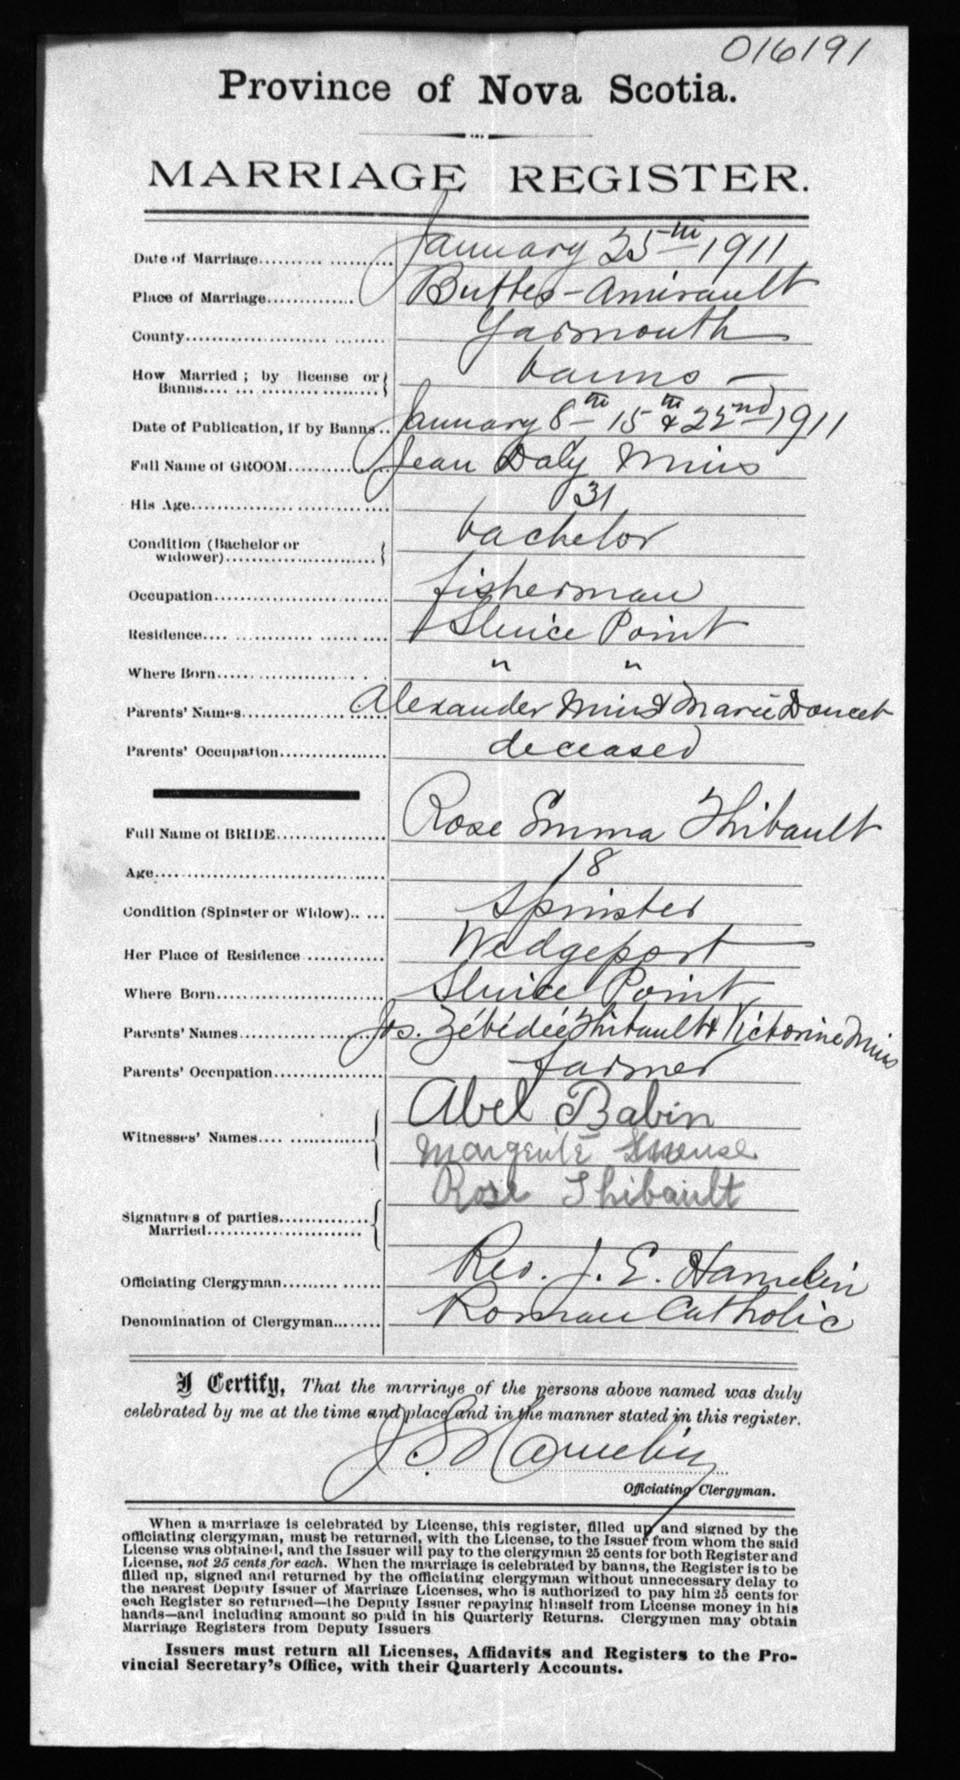 016191
Province of Nova Scotia.
MARRIAGE REGISTER.
Date of Marriage.......... ........... January 25th 1911
Place of Marriage............. Buttes-Amirault
County..................... ......... Yarmouth
How Married; by license or banns —
Banns.... ... ............ ...........
Date of Publication, if by Banns.. January 8th 15th & 22nd 1911
Full Name of GROOM............... Jean Daly Mius
His Age........................... 31
Condition (Bachelor or bachelor
widower)...........................
Occupation........................ fisherman
Residence.... .............. ..... ..... Sluice Point
Where Born..................... . " "
Parents' Names..................... Alexander Mius & Marie Doucet
Parents' Occupation................ deceased
Full Name of BRIDE............... Rose Emma Thibault
Age................................. 18
Condition (Spinster or Widow).. .... spinster
Her Place of Residence ........... Wedgeport
Where Born........................ Sluice Point
Parents' Names..................... Jos. Zébédée Thibault & Victorine Mius
Parents' Occupation................ farmer
Abel Babin
Witnesses' Names.... .............
Rose Thibault
Signatures of parties..............
Married..........................
Officiating Clergyman........ ..... Rev. J. E. Hamelin
Denomination of Clergyman........ Roman Catholic
I Certify, That the marriage of the persons above named was duly
celebrated by me at the time and place and in the manner stated in this register.
J. E. Hamelin
Officiating Clergyman.
When a marriage is celebrated by License, this register, filled up and signed by the
officiating clergyman, must be returned, with the License, to the Issuer from whom the said
License was obtained, and the Issuer will pay to the clergyman 25 cents for both Register and
License, not 25 cents for each. When the marriage is celebrated by banns, the Register is to be
filled up, signed and returned by the officiating clergyman without unnecessary delay to
the nearest Deputy Issuer of Marriage Licenses, who is authorized to pay him 25 cents for
each Register so returned—the Deputy Issuer repaying himself from License money in his
hands—and including amount so paid in his Quarterly Returns. Clergymen may obtain
Marriage Registers from Deputy Issuers
Issuers must return all Licenses, Affidavits and Registers to the Pro-
vincial Secretary's Office, with their Quarterly Accounts.